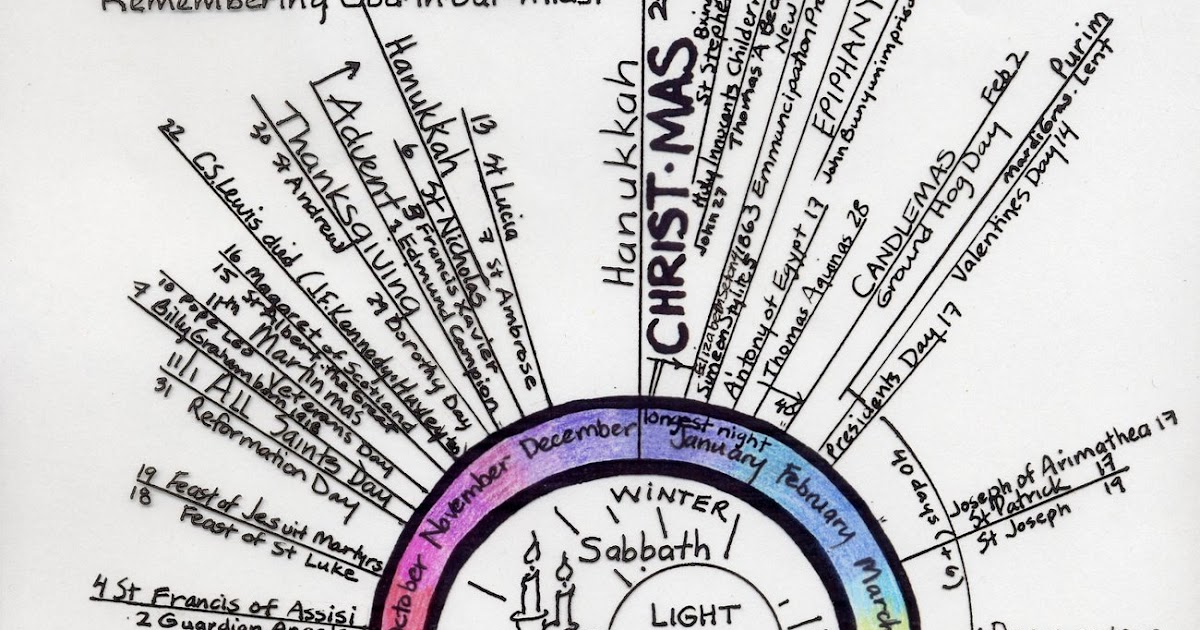 Remembering God in our midst
Hanukkah
13 St Lucia
7 St Ambrose
6 St Nicholas
3 Francis Xavier
1 Edmund Campion
Advent
Thanksgiving
30 St Andrew
29 Dorothy Day
22 CS Lewis died (J.F. Kennedy, Huxley too
16 Margaret of Scotland
15 St Albert the Great
11th Martinmas
Veterans Day
10 Pope Leo
7 Billy Graham born 1918
11/1 ALL Saints Day
31 Reformation Day
19 Feast of Jesuit Martyrs
18 Feast of St Luke
4 St Francis of Assisi
2 Guardian
Hanukkah
CHRIST·MAS
St Stephen
Holy Innocents Childer
John 27
Thomas A Bec
New
1863 Emmuncipation Pr
Elizabeth Seton
Simeon Stylites
EPIPHANY
John Bunyun impriso
Antony of Egypt 17
Thomas Aquanas 28
CANDLEMAS Feb 2
Ground Hog Day
Purim
Mardi Gras. Lent
Valentines Day 14
Presidents Day 17
40
40 days (+6)
Joseph of Arimathea 17
St Patrick 17
St Joseph 19
October
November
December
longest night
January
February
March
WINTER
Sabbath
LIGHT